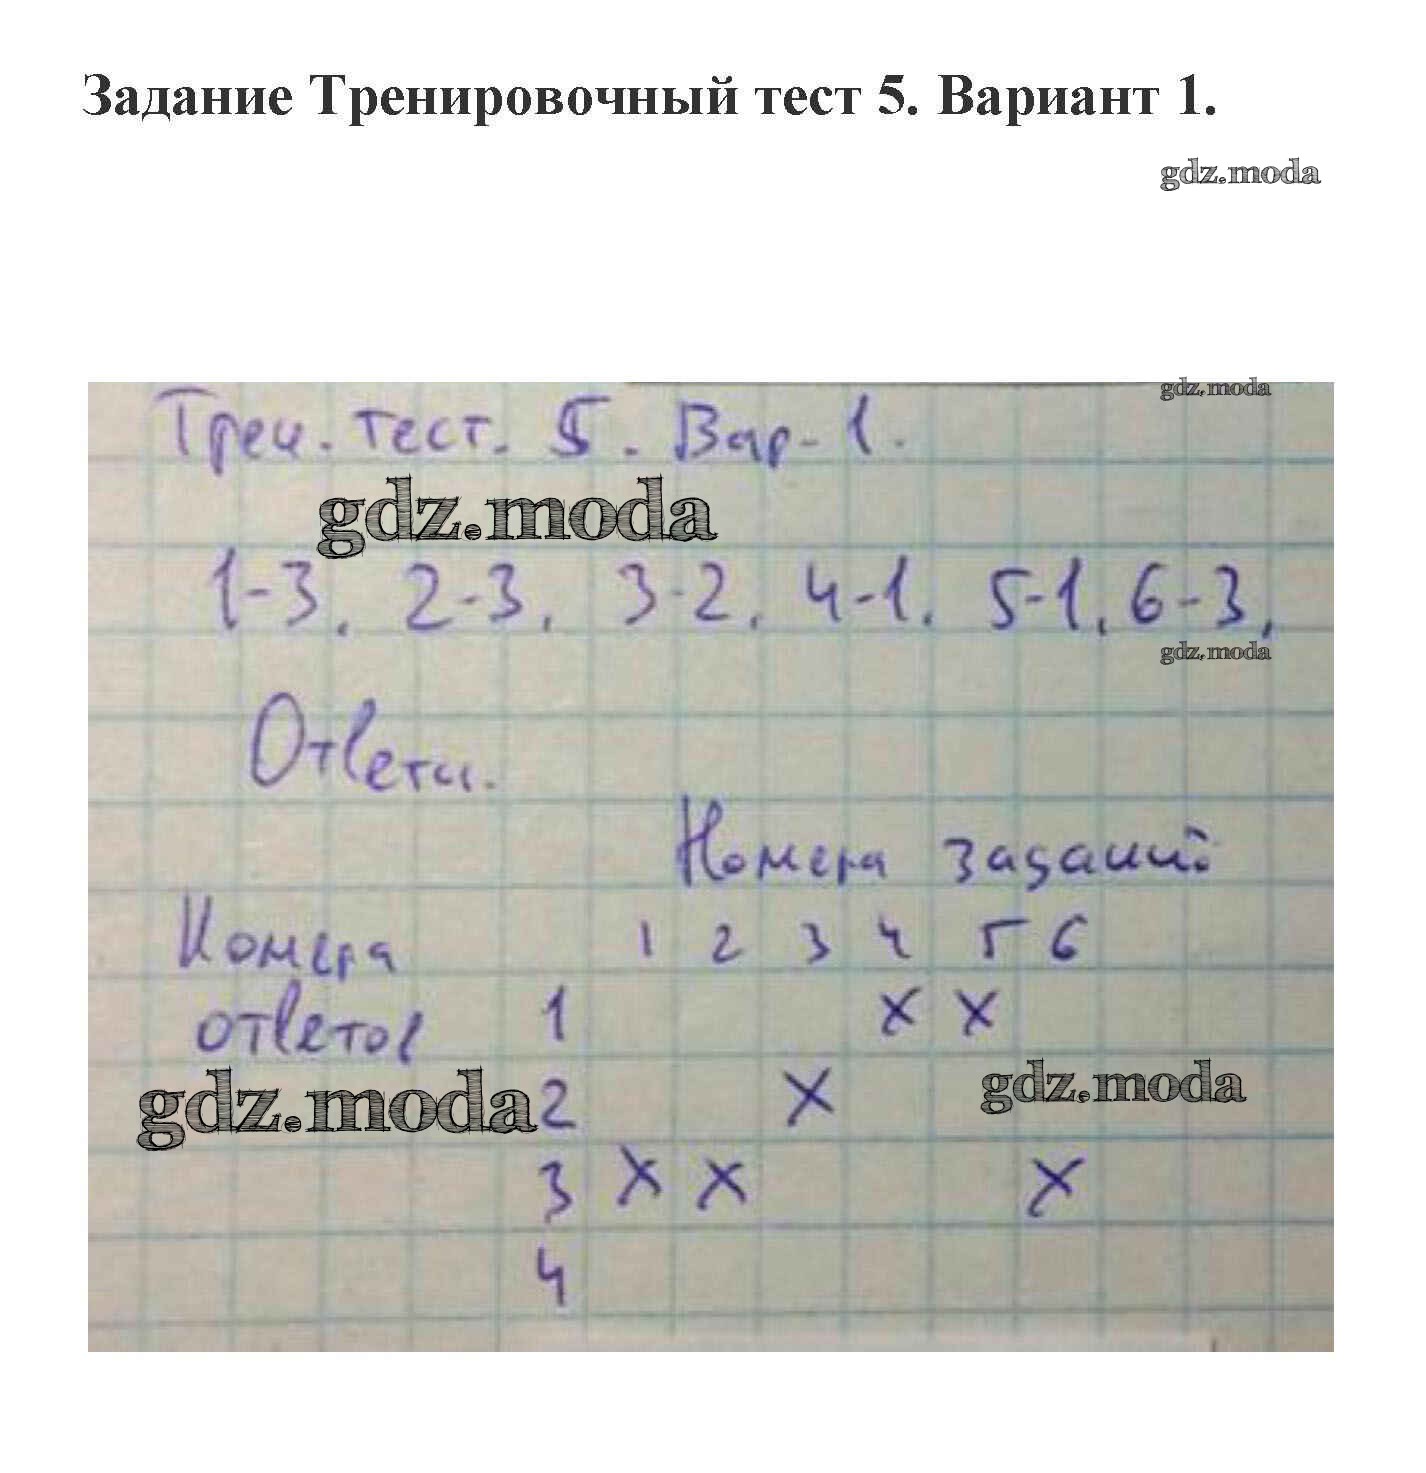 Задание Тренировочный тест 5. Вариант 1.
gdz.moda
gdz.moda
Трен. тест. 5. Вар-1.
gdz.moda
1-3, 2-3, 3-2, 4-1, 5-1, 6-3,
gdz.moda
Ответы.
Номера заданий:
Номера 1 2 3 4 5 6
ответов 1 х х
gdz.moda 2 х gdz.moda
3 х х х
4